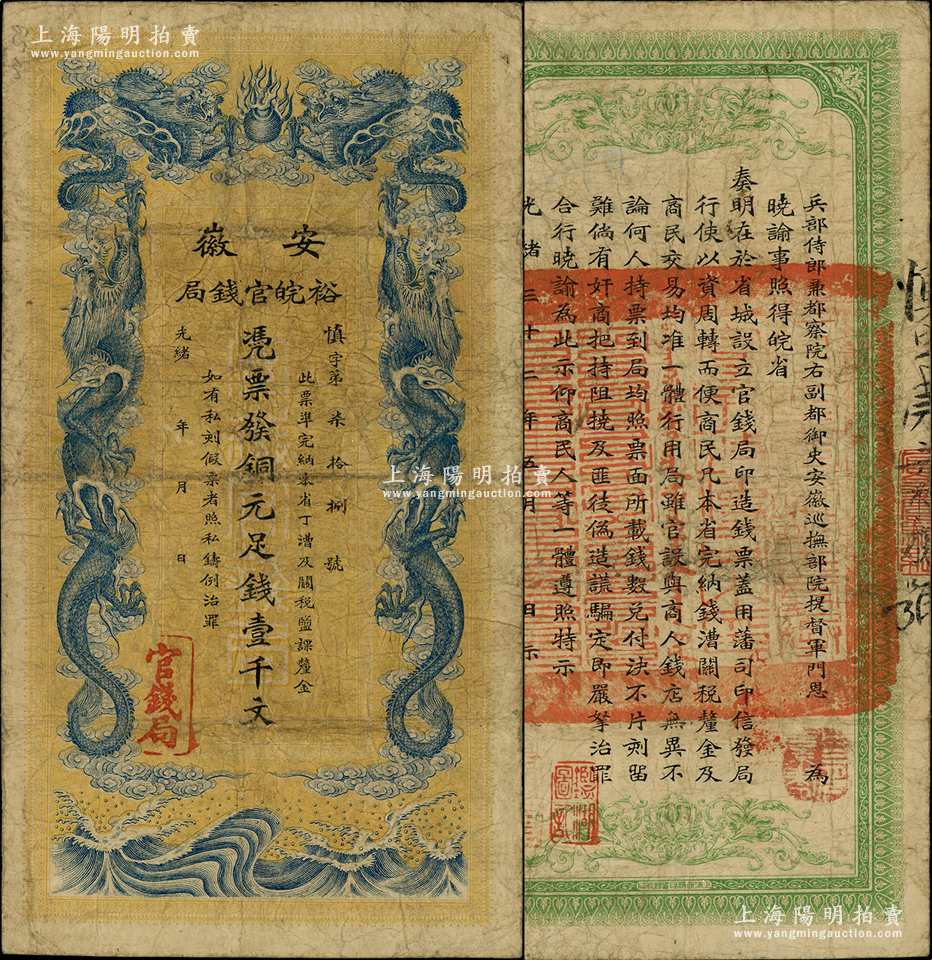 上海陽明拍賣
www.yangmingauction.com
安徽
裕皖官錢局
慎字第柒拾捌號
此票準完納東省丁漕及關稅鹽課釐金
憑票發銅元足錢壹千文
如有私刻假票者照私鑄例治罪
光緒 年 月 日
官錢局
上海陽明拍賣
www.yangmingauction.com
兵部侍郎兼都察院右副都御史安徽巡撫部院提督軍門恩 為
曉諭事照得皖省
奏明在於省城設立官錢局印造錢票蓋用藩司印信發局
行使以資周轉而便商民凡本省完納錢漕關稅釐金及
商民交易均准一體行用局雖官設與商人錢店無異不
論何人持票到局均照票面所載錢數兌付決不片刻留
難倘有奸商把持阻撓及匪徒偽造謊騙定即嚴拏治罪
合行曉諭為此示仰商民人等一體遵照特示
光緒三十二年五月 日示
上海陽明拍賣
www.yangmingauction.com